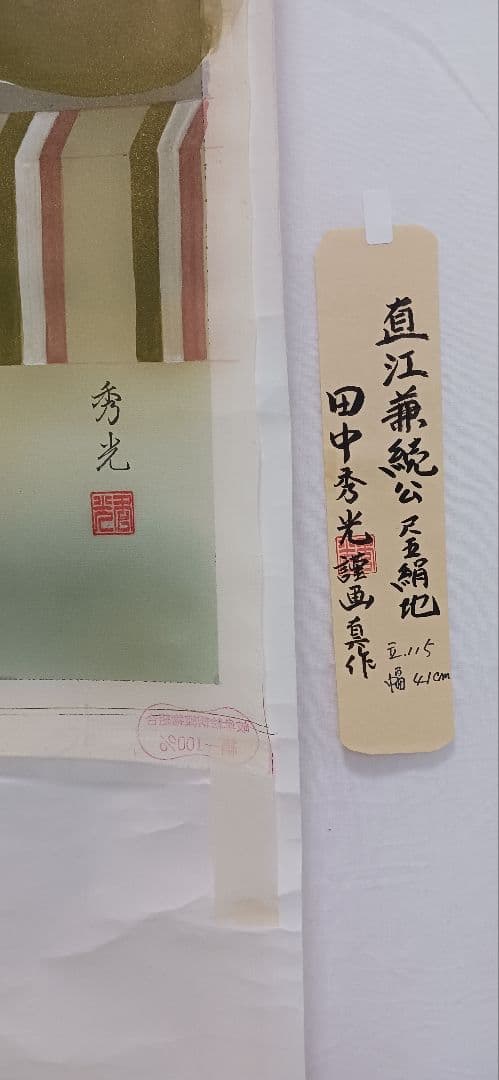 直江兼続公 尺五絹地
立.115
幅 41cm
田中秀光謹画 真作
秀光
100%